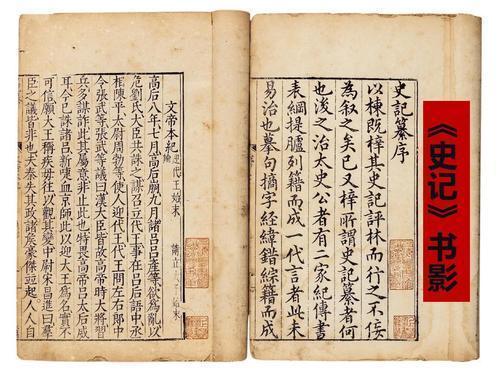 《史记》书影
史記纂序
以棟既梓其史記評林而行之不佞
為叙之矣已又梓所謂史記纂者何
也後之治太史公者有二家紀傳書
表綱提臚列籍而成一代言者此未
易治也摹句摘字經緯錯綜籍而成
文帝本紀 迎代王始末
高后八年七月高后崩九月諸呂呂產等欲為亂以
危劉氏大臣共誅之謀召立代王事在呂后語中丞
相陳平太尉周勃等使人迎代王代王問左右郎中
令張武等張武等議曰漢大臣皆故高帝時大將習
兵多謀詐此其屬意非止此也特畏高帝呂太后威
耳今已誅諸呂新喋血京師此以迎大王為名實不
可信願大王稱疾毋往以觀其變中尉宋昌進曰羣
臣之議皆非也夫秦失其政諸矦豪傑並起人人自